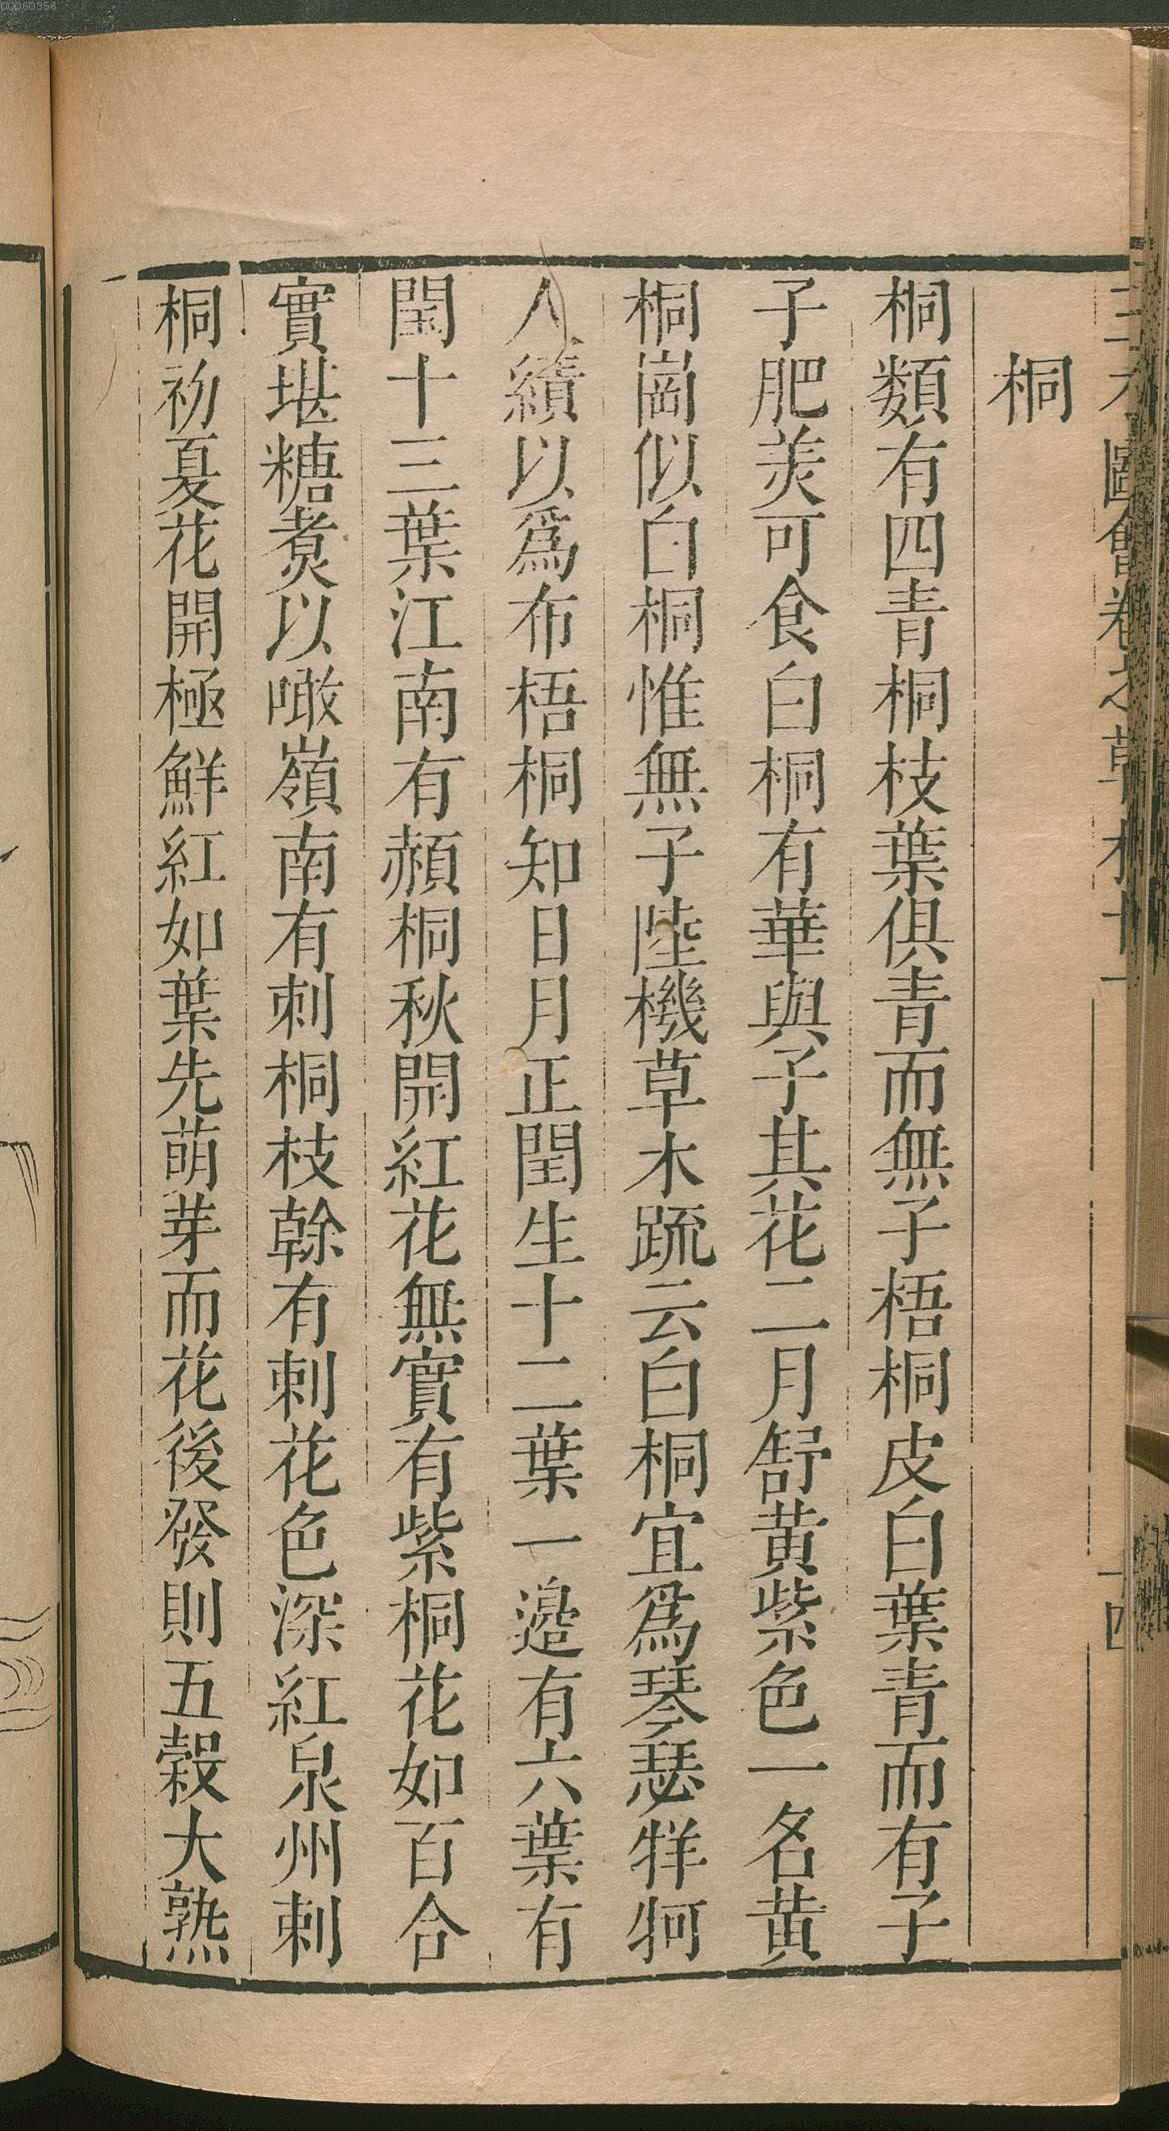 桐
桐類有四青桐枝葉俱青而無子梧桐皮白葉青而有子
子肥美可食白桐有華與子其花二月舒黃紫色一名黃
桐崗似白桐惟無子陸機草木疏云白桐宜爲琴瑟牂牁
人績以爲布梧桐知日月正閏生十二葉一邉有六葉有
閏十三葉江南有赬桐秋開紅花無實有紫桐花如百合
實堪糖煑以噉嶺南有刺桐枝幹有刺花色深紅泉州刺
桐初夏花開極鮮紅如葉先萌芽而花後發則五穀大熟
00080356